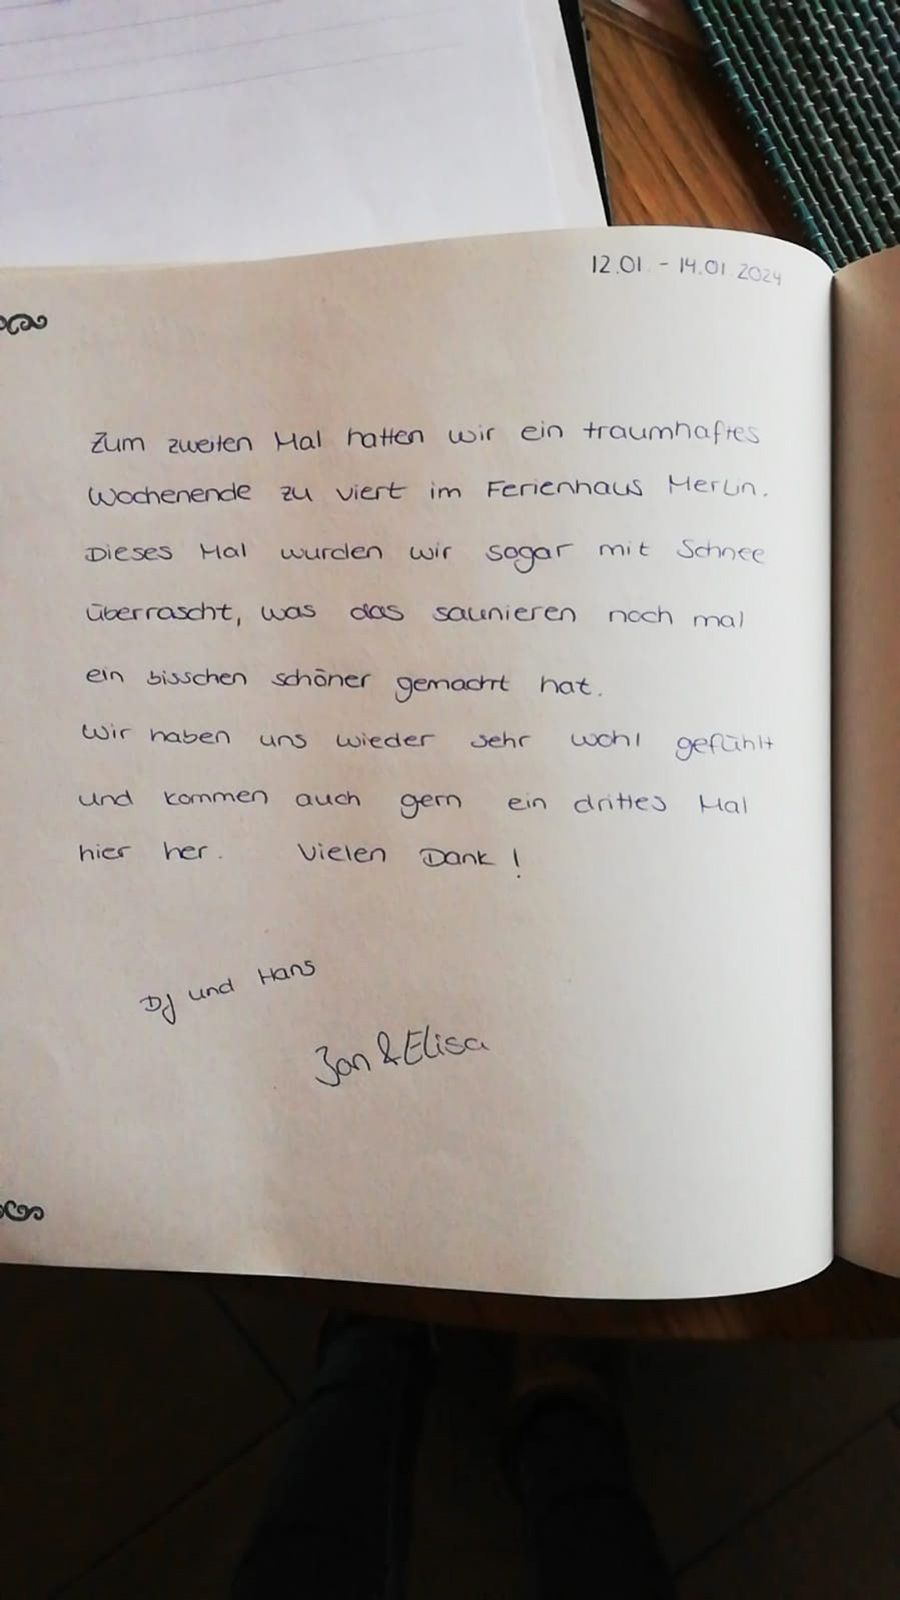 12.01. - 14.01.2024
Zum zweiten Mal hatten wir ein traumhaftes
Wochenende zu viert im Ferienhaus Merlin.
Dieses Mal wurden wir sogar mit Schnee
überrascht, was das saunieren noch mal
ein bisschen schöner gemacht hat.
Wir haben uns wieder sehr wohl gefühlt
und kommen auch gern ein drittes Mal
hier her. Vielen Dank!
DJ und Hans
Jan & Elisa